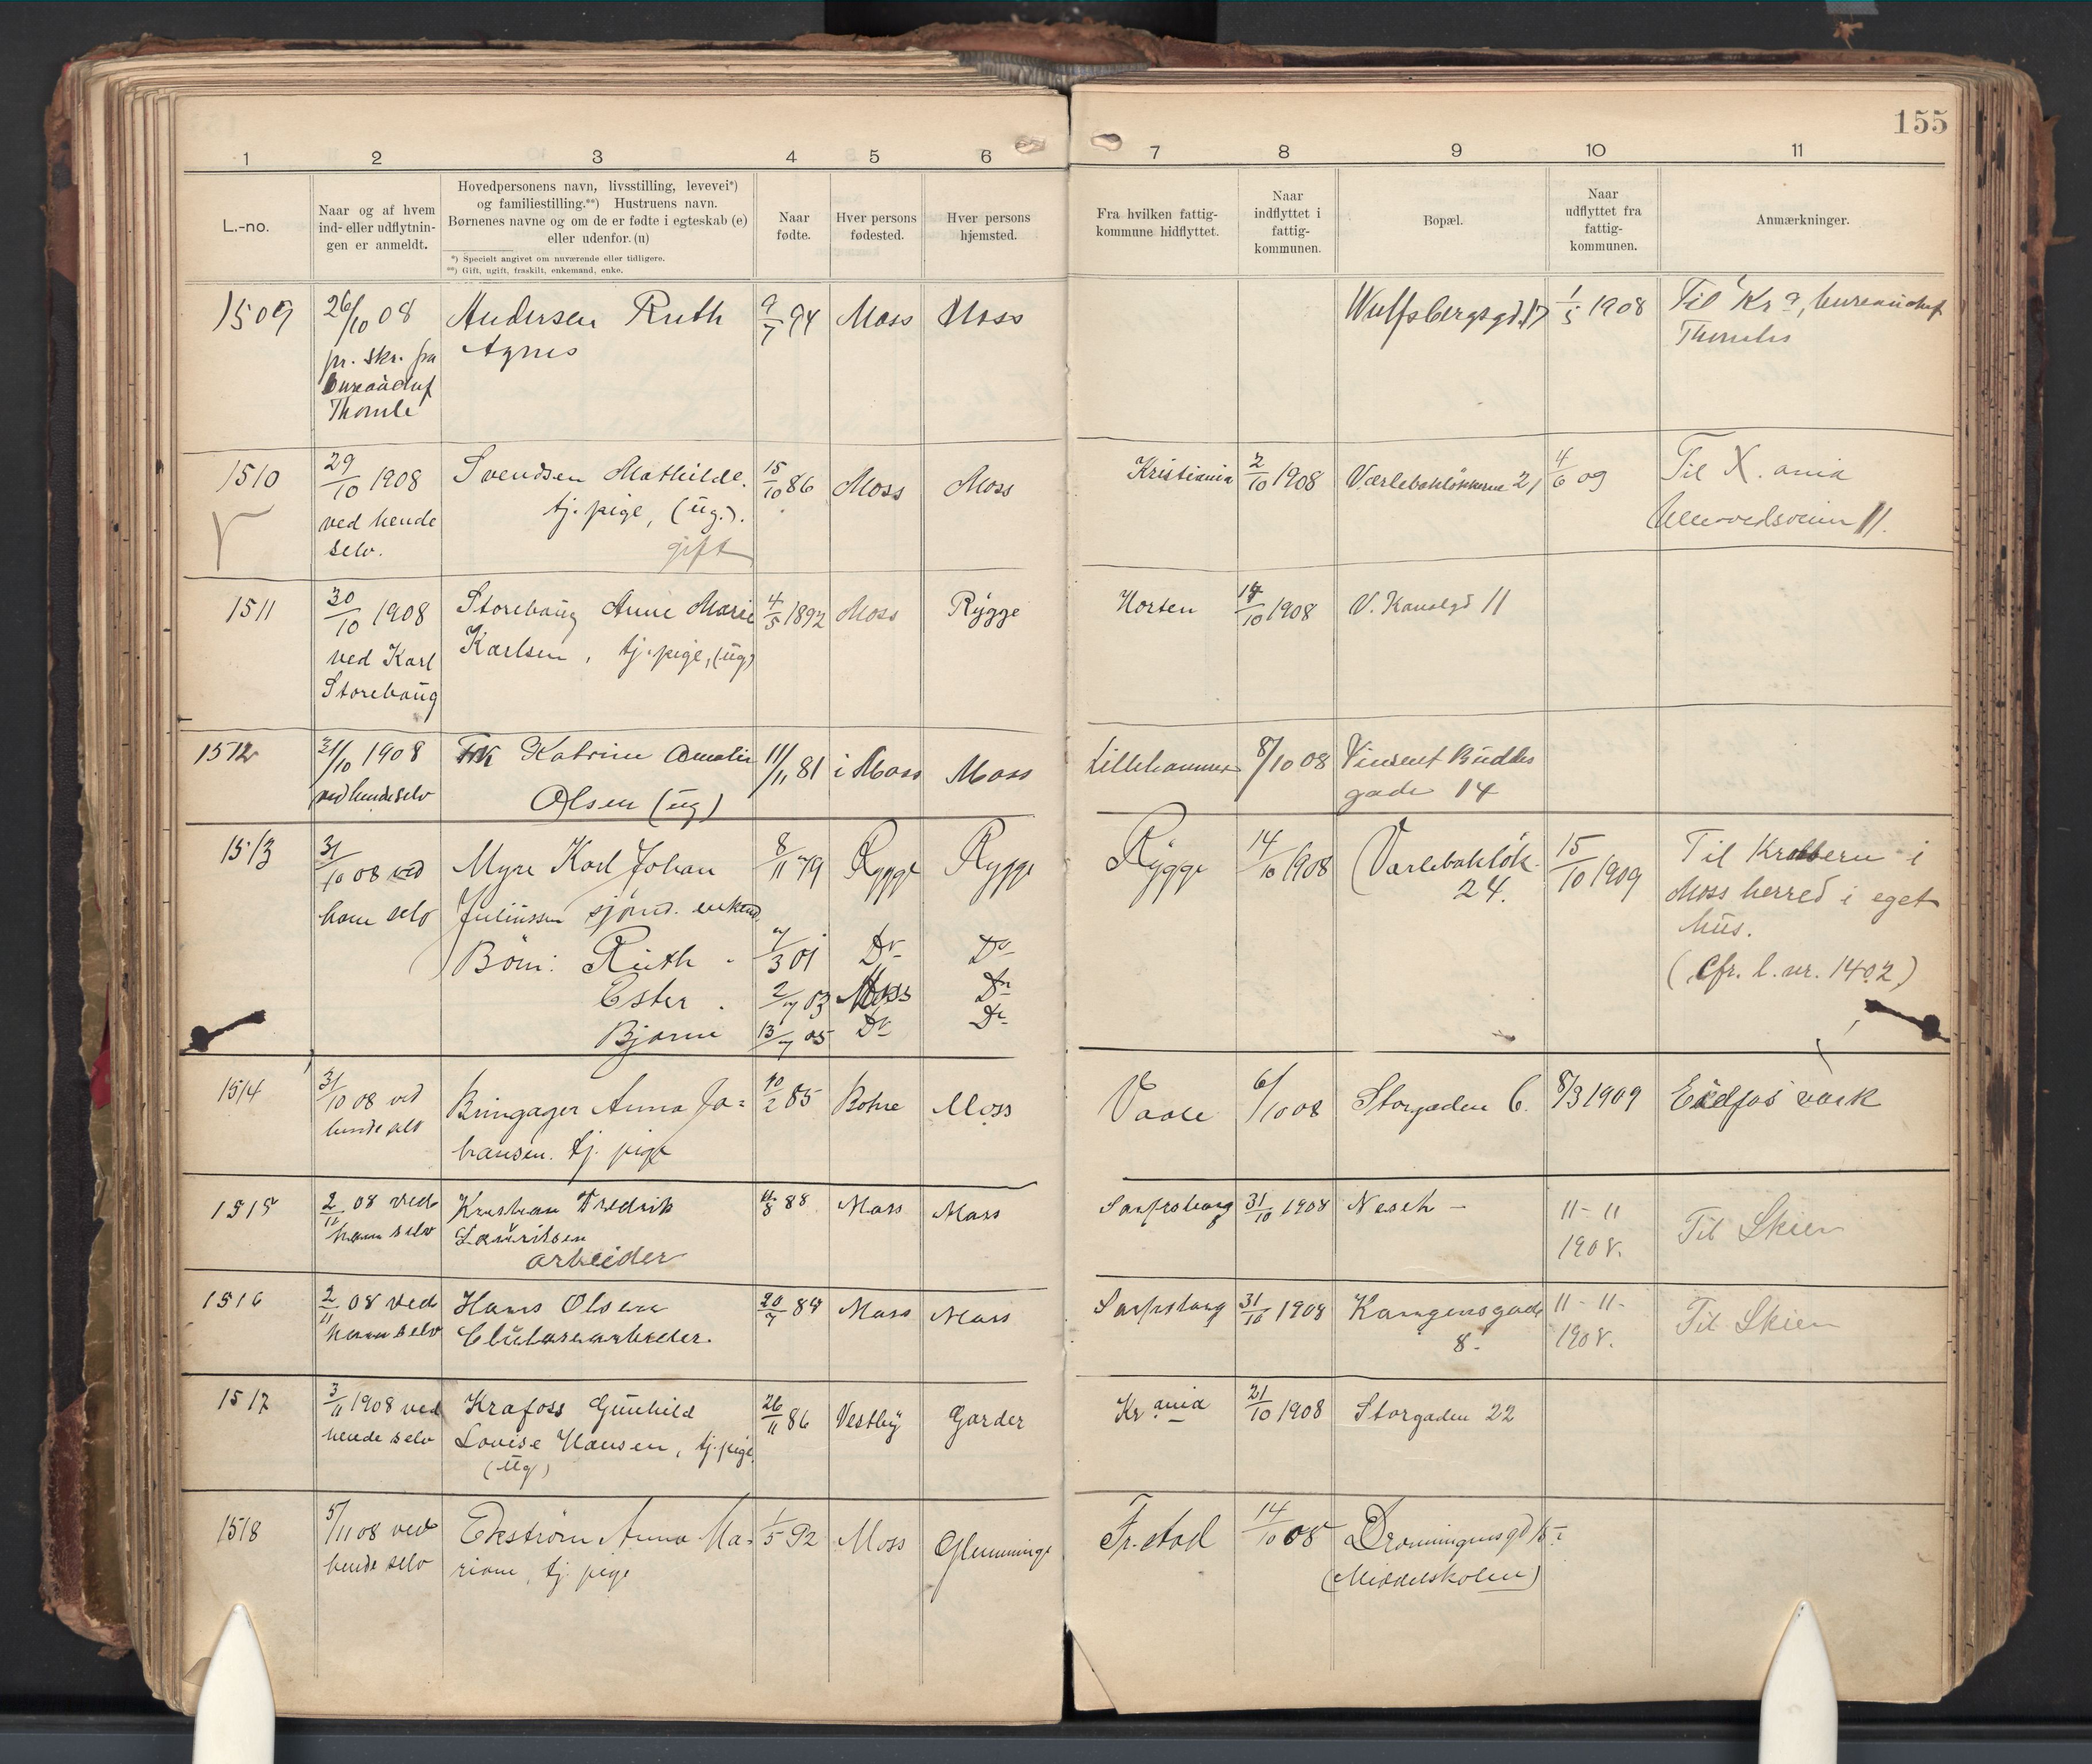 155
1 2 3 4 5 6 7 8 9 10 11
L.-no.
Naar og af hvem
ind- eller udflytnin-
gen er anmeldt.
Hovedpersonens navn, livsstilling, levevei*)
og familiestilling.**) Hustruens navn.
Børnenes navne og om de er fødte i egteskab (e)
eller udenfor. (u)
*) Specielt angivet om nuværende eller tidligere.
**) Gift, ugift, fraskilt, enkemand, enke.
Naar
fødte.
Hver persons
fødested.
Hver persons
hjemsted.
Fra hvilken fattig-
kommune hidflyttet.
Naar
indflyttet i
fattig-
kommunen.
Bopæl.
Naar
udflyttet fra
fattig-
kommunen.
Anmærkninger.
1509
26/10 08
pr. skr. fra
bureauchef
Thomle
Andersen Ruth
Agnes
9/7 94
Moss
Moss
Wulfsbergsgd. 17
1/5 1908
Til Kr a, bureauchef
Thomles
1510
29/10 1908
ved hende
selv.
Svendsen Mathilde.
tj. pige, (ug.).
gift
15/10 86
Moss
Moss
Kristiania
2/10 1908
Værlebakløkkerne 21
4/6 09
Til X. ania
11.
1511
30/10 1908
ved Karl
Storebaug
Storebaug Anne Marie
Karlsen, tj. pige, (ug)
4/5 1892
Moss
Rygge
Horten
14/10 1908
V. Kanalgd 11
1512
31/10 1908
ved hende selv
Frk Katrine Amalie
Olsen (ug)
11/11 81
i Moss
Moss
Lillehammer
8/10 08
Vincent Buddes
gade 14
1513
31/10 08 ved
ham selv
Myre Karl Johan
Juliussen sjømd. enkemd.
Børn: Ruth
Ester
Bjarne
8/11 79
7/3 01
2/7 03
13/7 05
Rygge
Do
Moss
Do
Rygge
Do
Do
Do
Rygge
14/10 1908
Varlebakløk.
24.
15/10 1909
Til Krabbern i
Moss herred i eget
hus.
(Cfr. l. nr. 1402)
1514
31/10 08 ved
hende selv
Bringager Anna Jo=
hansen. tj. pige
10/2 85
Bohre
Moss
Vaale
6/10 08
Storgaden 6.
8/3 1909
Eidfos værk
1515
2/11 08 ved
ham selv
Kristian Fredrik
Lauritsen
arbeider
11/8 88
Moss
Moss
Sarpsborg
31/10 1908
Nesch -
11 - 11
1908.
Til Skien
1516
2/11 08 ved
ham selv
Hans Olsen
Cluloxearbeider.
20/7 88
Moss
Moss
Sarpsborg
31/10 1908
Kongensgade
8.
11 - 11 -
1908.
Til Skien
1517
3/11 1908 ved
hende selv
Krafoss Gunhild
Lovise Hansen, tj. pige.
(ug)
26/11 86
Vestby
Garder
Kr ania
21/10 1908
Storgaden 22
1518
5/11 08 ved
hende selv
Ekström Anna Ma-
riane, tj. pige
1/5 92
Moss
Glemminge
Fr. stad
14/10 08
Dronningensgd 15
(Middelskolen)